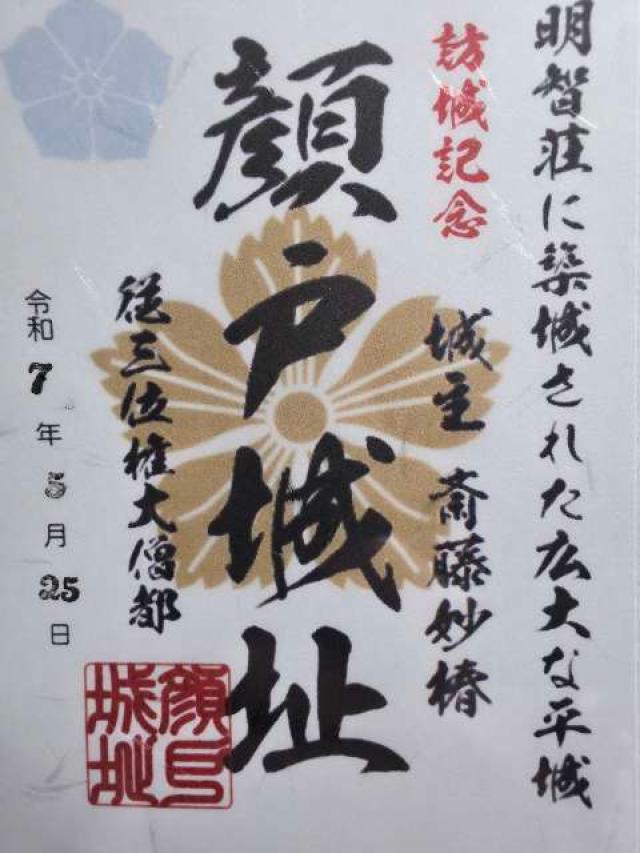 明智荘に築城された広大な平城
訪城記念
城主 斎藤妙椿
顔戸城址
従三位権大僧都
令和7年5月25日
顔戸城址